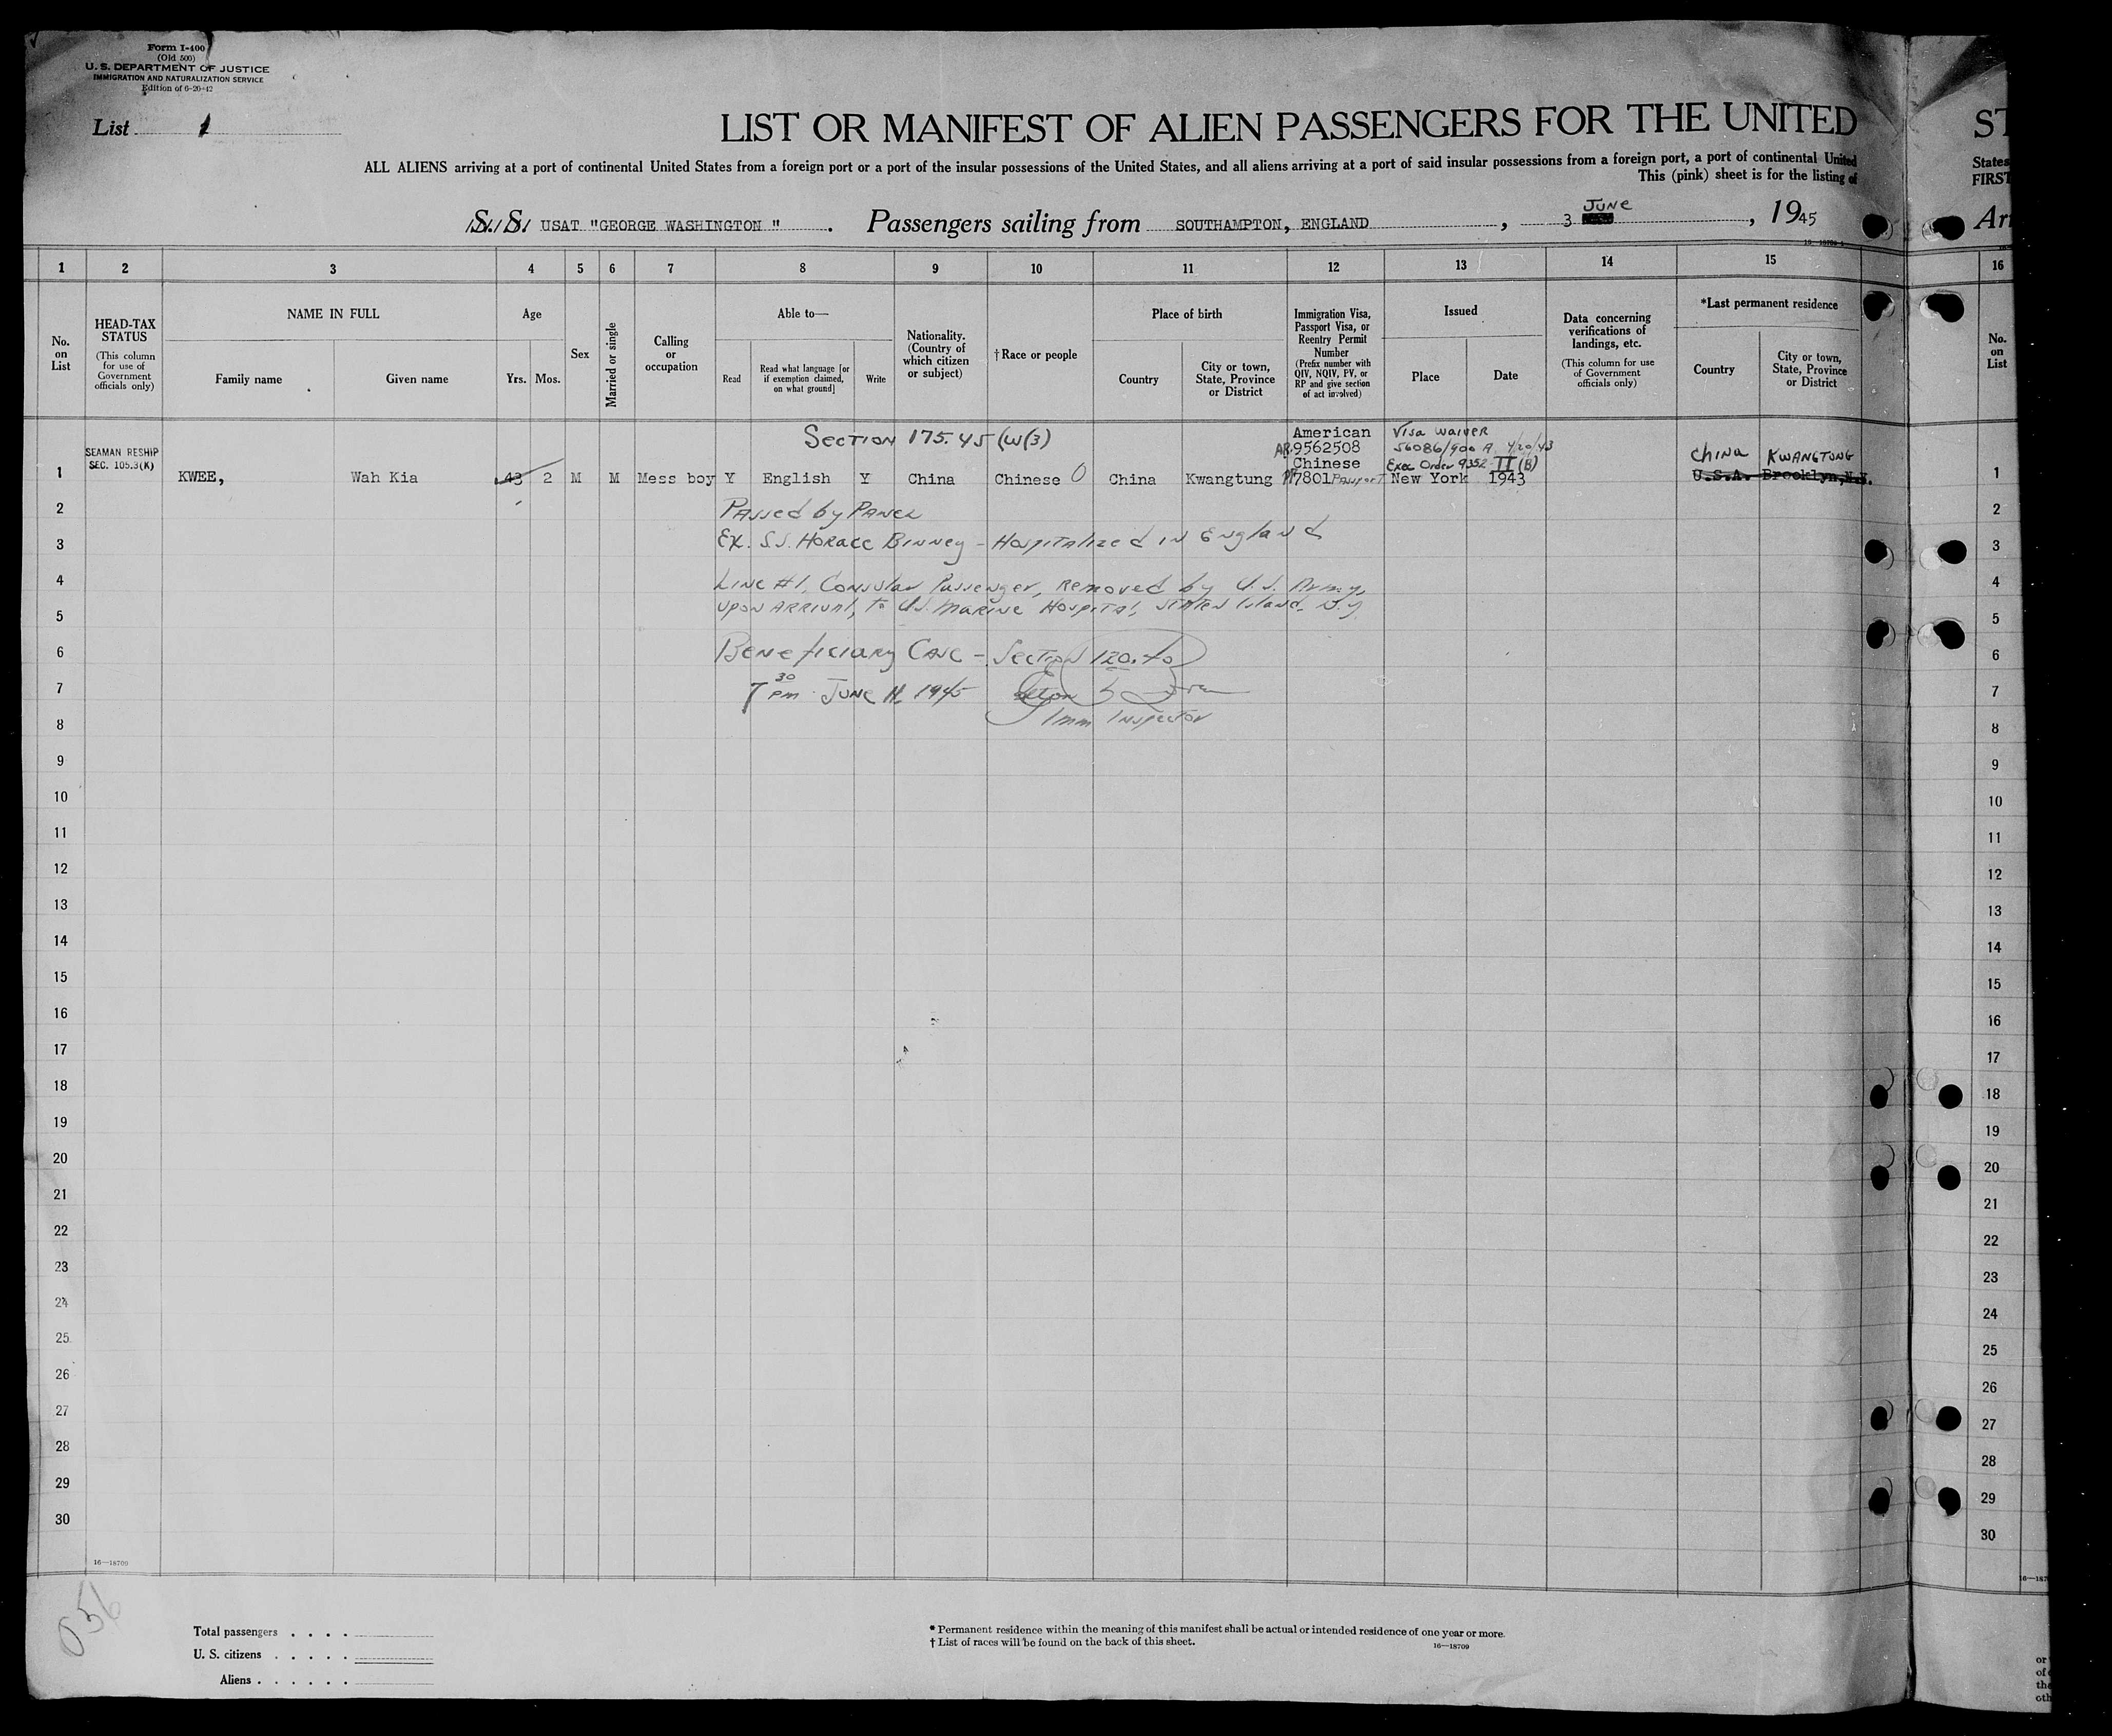 Form I-400
(Old 500)
U. S. DEPARTMENT OF JUSTICE
IMMIGRATION AND NATURALIZATION SERVICE
Edition of 6-20-42
List 1
LIST OR MANIFEST OF ALIEN PASSENGERS FOR THE UNITED
ST
ALL ALIENS arriving at a port of continental United States from a foreign port or a port of the insular possessions of the United States, and all aliens arriving at a port of said insular possessions from a foreign port, a port of continental United
States
This (pink) sheet is for the listing of
FIRST
S. S. USAT "GEORGE WASHINGTON ". Passengers sailing from SOUTHAMPTON, ENGLAND, 3 JUNE, 1945
Arr
1 2 3 4 5 6 7 8 9 10 11 12 13 14 15 16
No. on List
HEAD-TAX STATUS (This column for use of Government officials only)
NAME IN FULL
Family name
Given name
Age
Yrs. Mos.
Sex
Married or single
Calling or occupation
Able to—
Read
Read what language [or if exemption claimed, on what ground]
Write
Nationality. (Country of which citizen or subject)
†Race or people
Place of birth
Country
City or town, State, Province or District
Immigration Visa, Passport Visa, or Reentry Permit Number (Prefix number with QIV, NQIV, PV, or RP and give section of act involved)
Issued
Place
Date
Data concerning verifications of landings, etc. (This column for use of Government officials only)
*Last permanent residence
Country
City or town, State, Province or District
No. on List
SECTION 175.45 (W(3)
American
Visa Waiver
SEAMAN RESHIP
AR 9562508
56086/900 A 4/20/43
SEC. 105.3(K)
Chinese
Exec Order 9352 II (B)
China KWANGTUNG
1 KWEE, Wah Kia 43 2 M M Mess boy Y English Y China Chinese China Kwangtung 7801 Passport New York 1943 U.S.A. Brooklyn,N.Y. 1
2 Passed by Panel 2
3 Ex. S.S. Horace Binney - Hospitalized in England 3
4 Line #1, Consular Passenger, Removed by U.S. Army, 4
upon arrival, to U.S. Marine Hospital, Staten Island, N.Y.
5 5
6 Beneficiary Case - Section 120.40 6
7 7 30 pm June 11, 1945 7
8 Imm Inspector 8
9 9
10 10
11 11
12 12
13 13
14 14
15 15
16 16
17 17
18 18
19 19
20 20
21 21
22 22
23 23
24 24
25 25
26 26
27 27
28 28
29 29
30 30
16—18709
056
Total passengers . . . .
U. S. citizens . . . . .
Aliens . . . . . .
* Permanent residence within the meaning of this manifest shall be actual or intended residence of one year or more.
† List of races will be found on the back of this sheet.
16—18709
or
of
the
oth